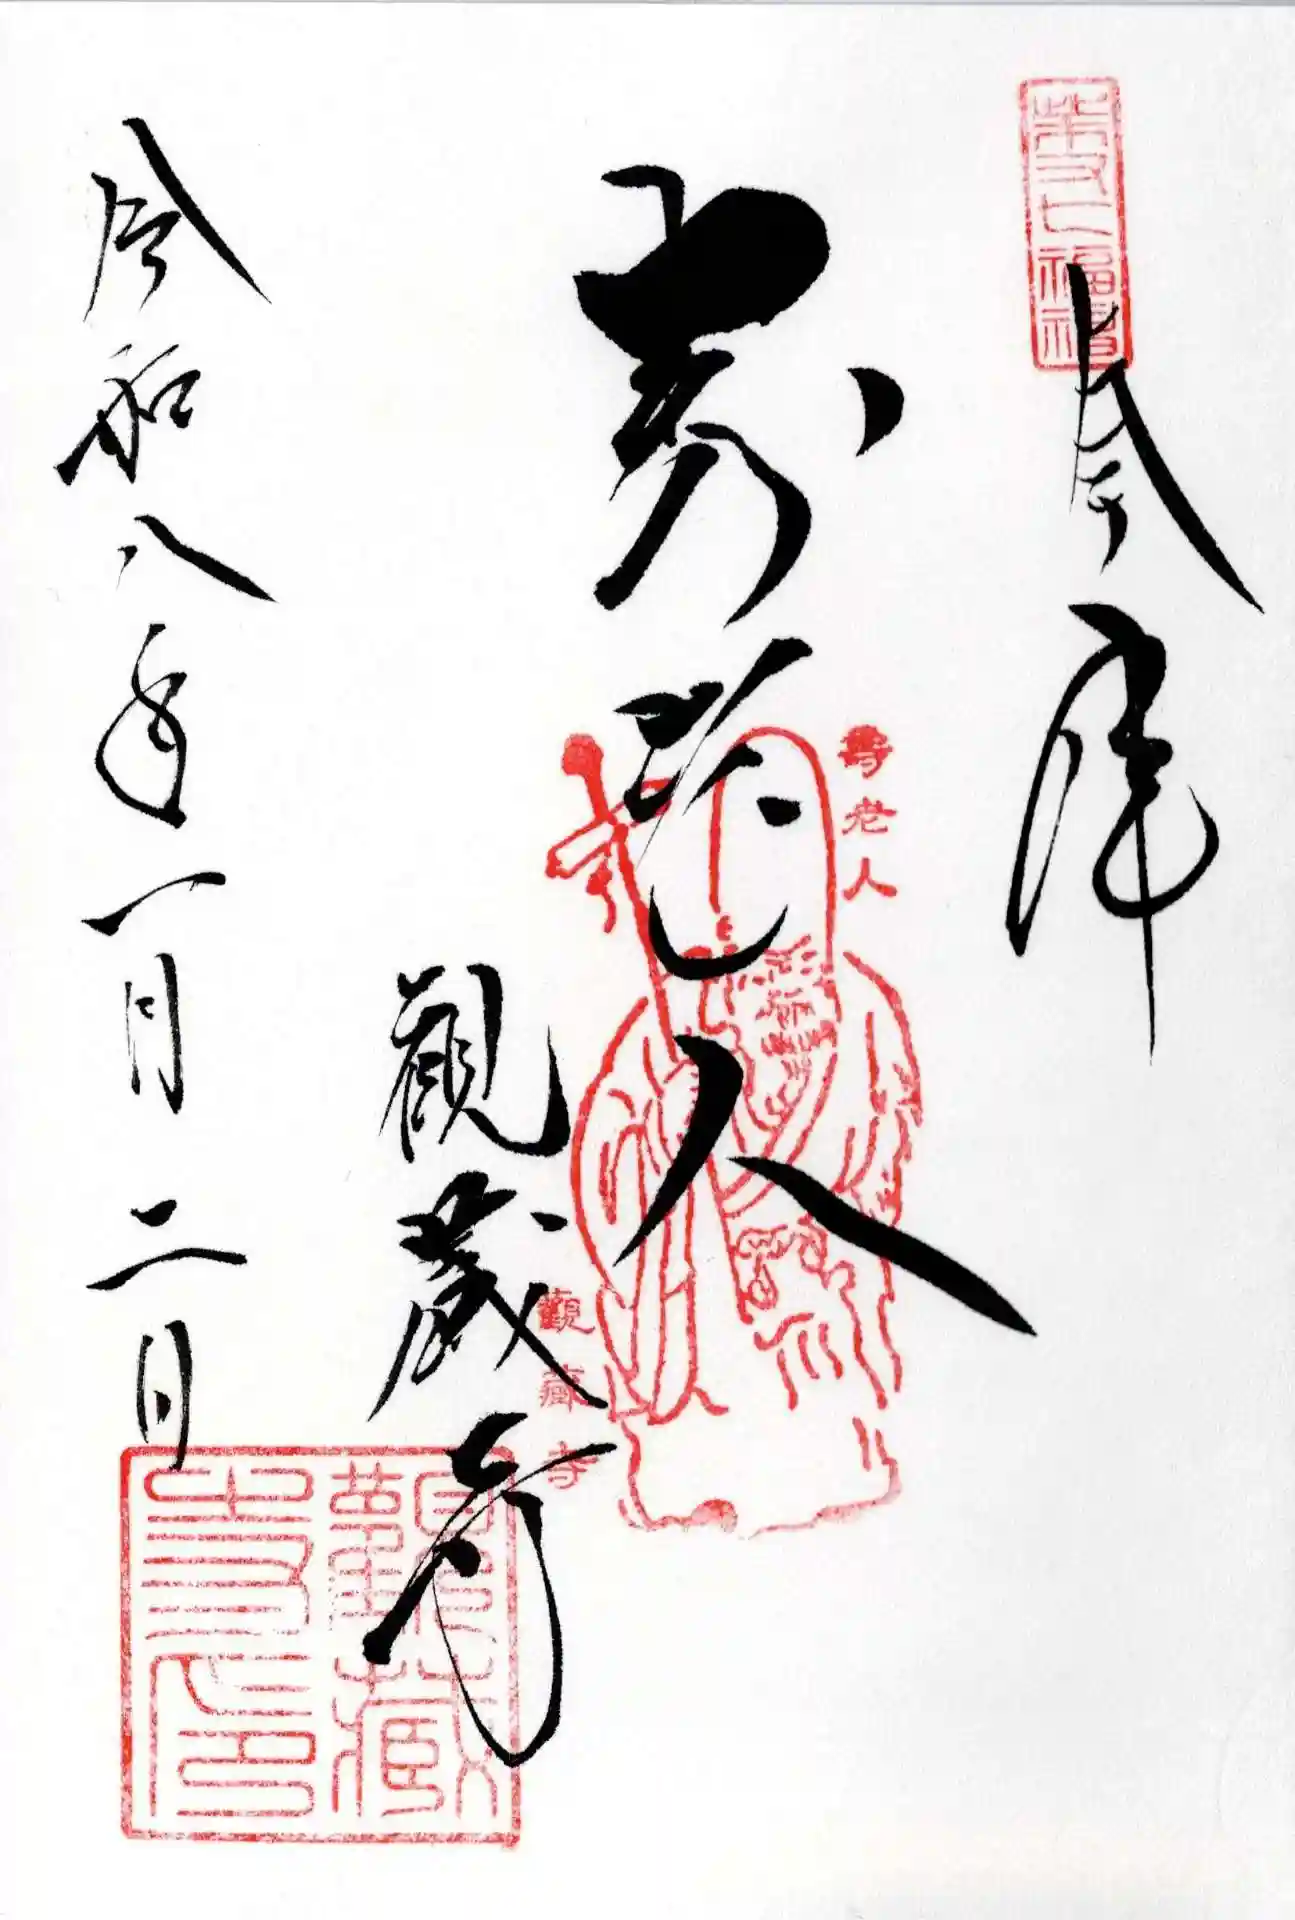 柴又七福神
奉拝
寿老人
壽老人
觀藏寺
觀蔵寺
令和八年一月二日
觀藏寺印